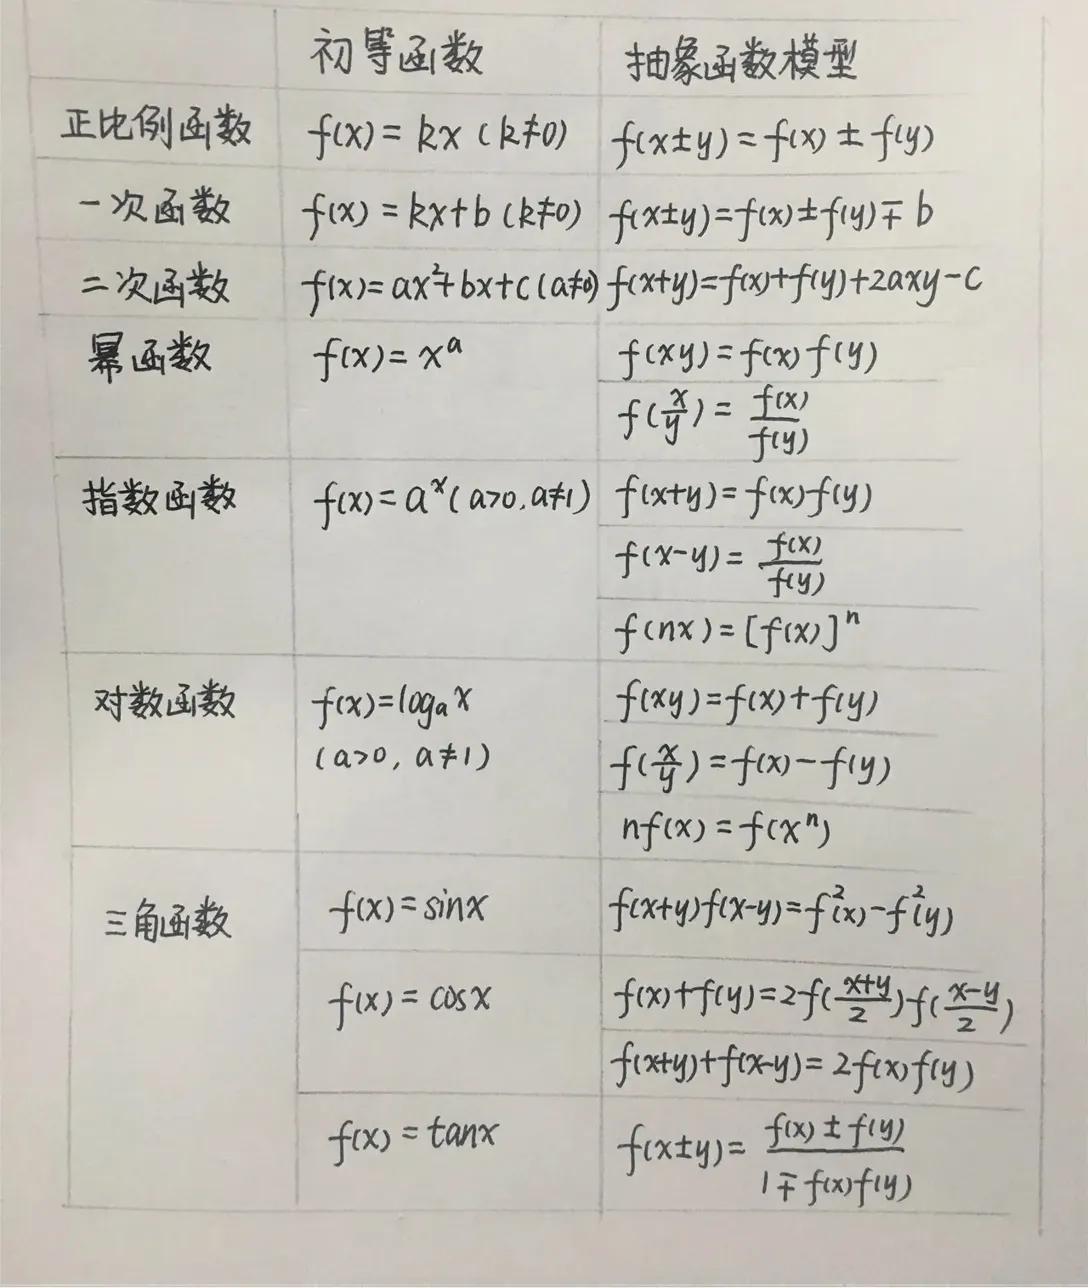 初等函数 抽象函数模型
正比例函数 f(x)=kx(k≠0) f(x±y)=f(x)±f(y)
一次函数 f(x)=kx+b(k≠0) f(x±y)=f(x)±f(y)∓b
二次函数 f(x)=ax²+bx+c(a≠0) f(x+y)=f(x)+f(y)+2axy-c
幂函数 f(x)=xᵃ f(xy)=f(x)f(y)
f(x/y)=f(x)/f(y)
指数函数 f(x)=aˣ(a>0,a≠1) f(x+y)=f(x)f(y)
f(x-y)=f(x)/f(y)
f(nx)=[f(x)]ⁿ
对数函数 f(x)=logₐx f(xy)=f(x)+f(y)
(a>0, a≠1) f(x/y)=f(x)-f(y)
nf(x)=f(xⁿ)
三角函数 f(x)=sinx f(x+y)f(x-y)=f²(x)-f²(y)
f(x)=cosx f(x)+f(y)=2f((x+y)/2)f((x-y)/2)
f(x+y)+f(x-y)=2f(x)f(y)
f(x)=tanx f(x±y)=(f(x)±f(y))/(1∓f(x)f(y))